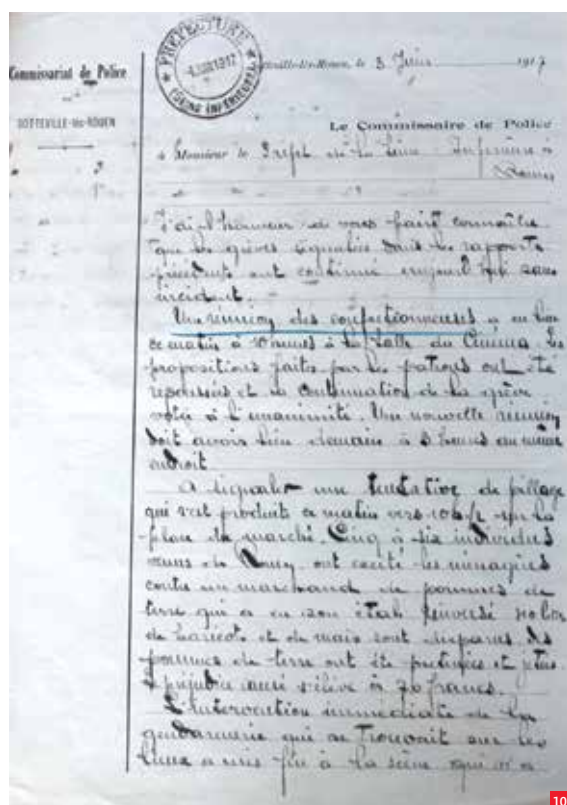 PRÉFECTURE
4 JUIN 1917
SEINE INFERIEURE
Commissariat de Police
SOTTEVILLE-lès-ROUEN
Sotteville-lès-Rouen, le 3 Juin 1917
Le Commissaire de Police
à Monsieur le Préfet de la Seine-Inférieure à
Rouen
J'ai l'honneur de vous faire connaître
que les grèves signalées dans les rapports
précédents ont continué aujourd'hui sans
incident.
Une réunion des confectionneuses a eu lieu
ce matin à 10 heures à la Salle du Cinéma. Les
propositions faites par les patrons ont été
repoussées et la continuation de la grève
votée à l'unanimité. Une nouvelle réunion
doit avoir lieu demain à heures au même
endroit
A signaler une tentative de pillage
qui s'est produite ce matin vers 10h 1/2 sur la
place du marché. Cinq à six individus
venus de Rouen ont excité les ménagères
contre un marchand de pommes de
terre qui a eu son étal renversé
de haricots et de maïs sont disparus. Des
pommes de terre ont été piétinées et
préjudice causé s'élève à 70 francs.
L'intervention immédiate de la
gendarmerie qui se trouvait sur les
lieux a mis fin à la scène qui n'a
10